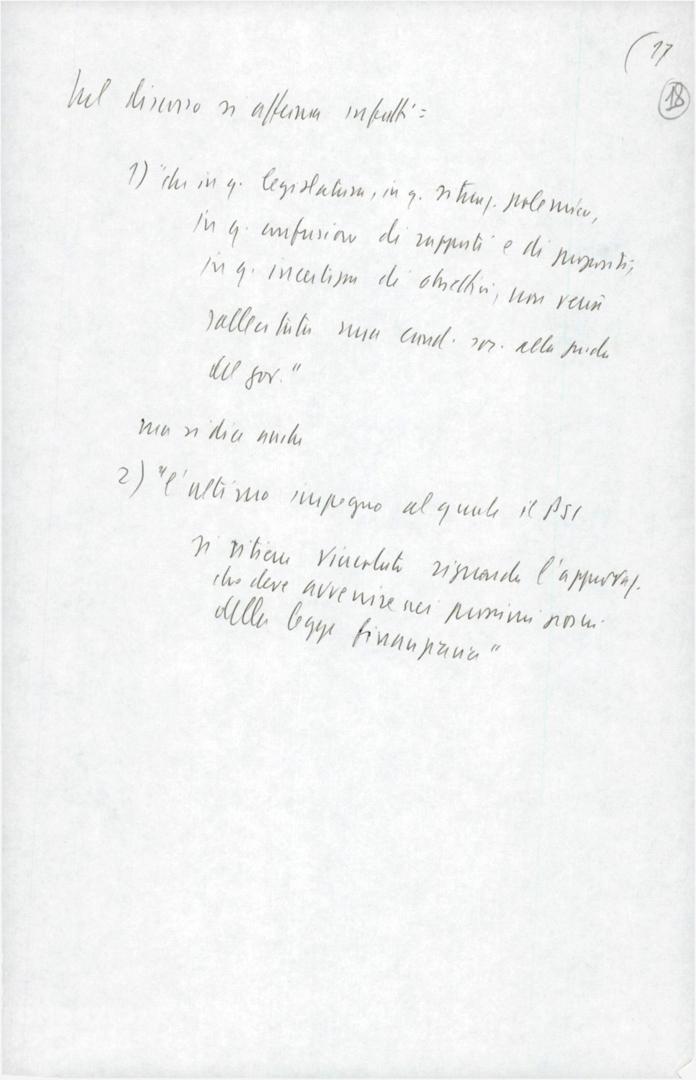 (17
18
Nel discorso si afferma infatti:
1) "che in q. legislatura, in q. situaz. polemica,
in q. confusione di rapporti e di propositi,
in q. incertezza di obiettivi, non verrà
sollecitata una cand. soc. alla guida
del gov."
ma si dice anche
2) "l'ultimo impegno al quale il PSI
si ritiene vincolato riguarda l'approvaz.
che deve avvenire nei prossimi giorni
della legge finanziaria"